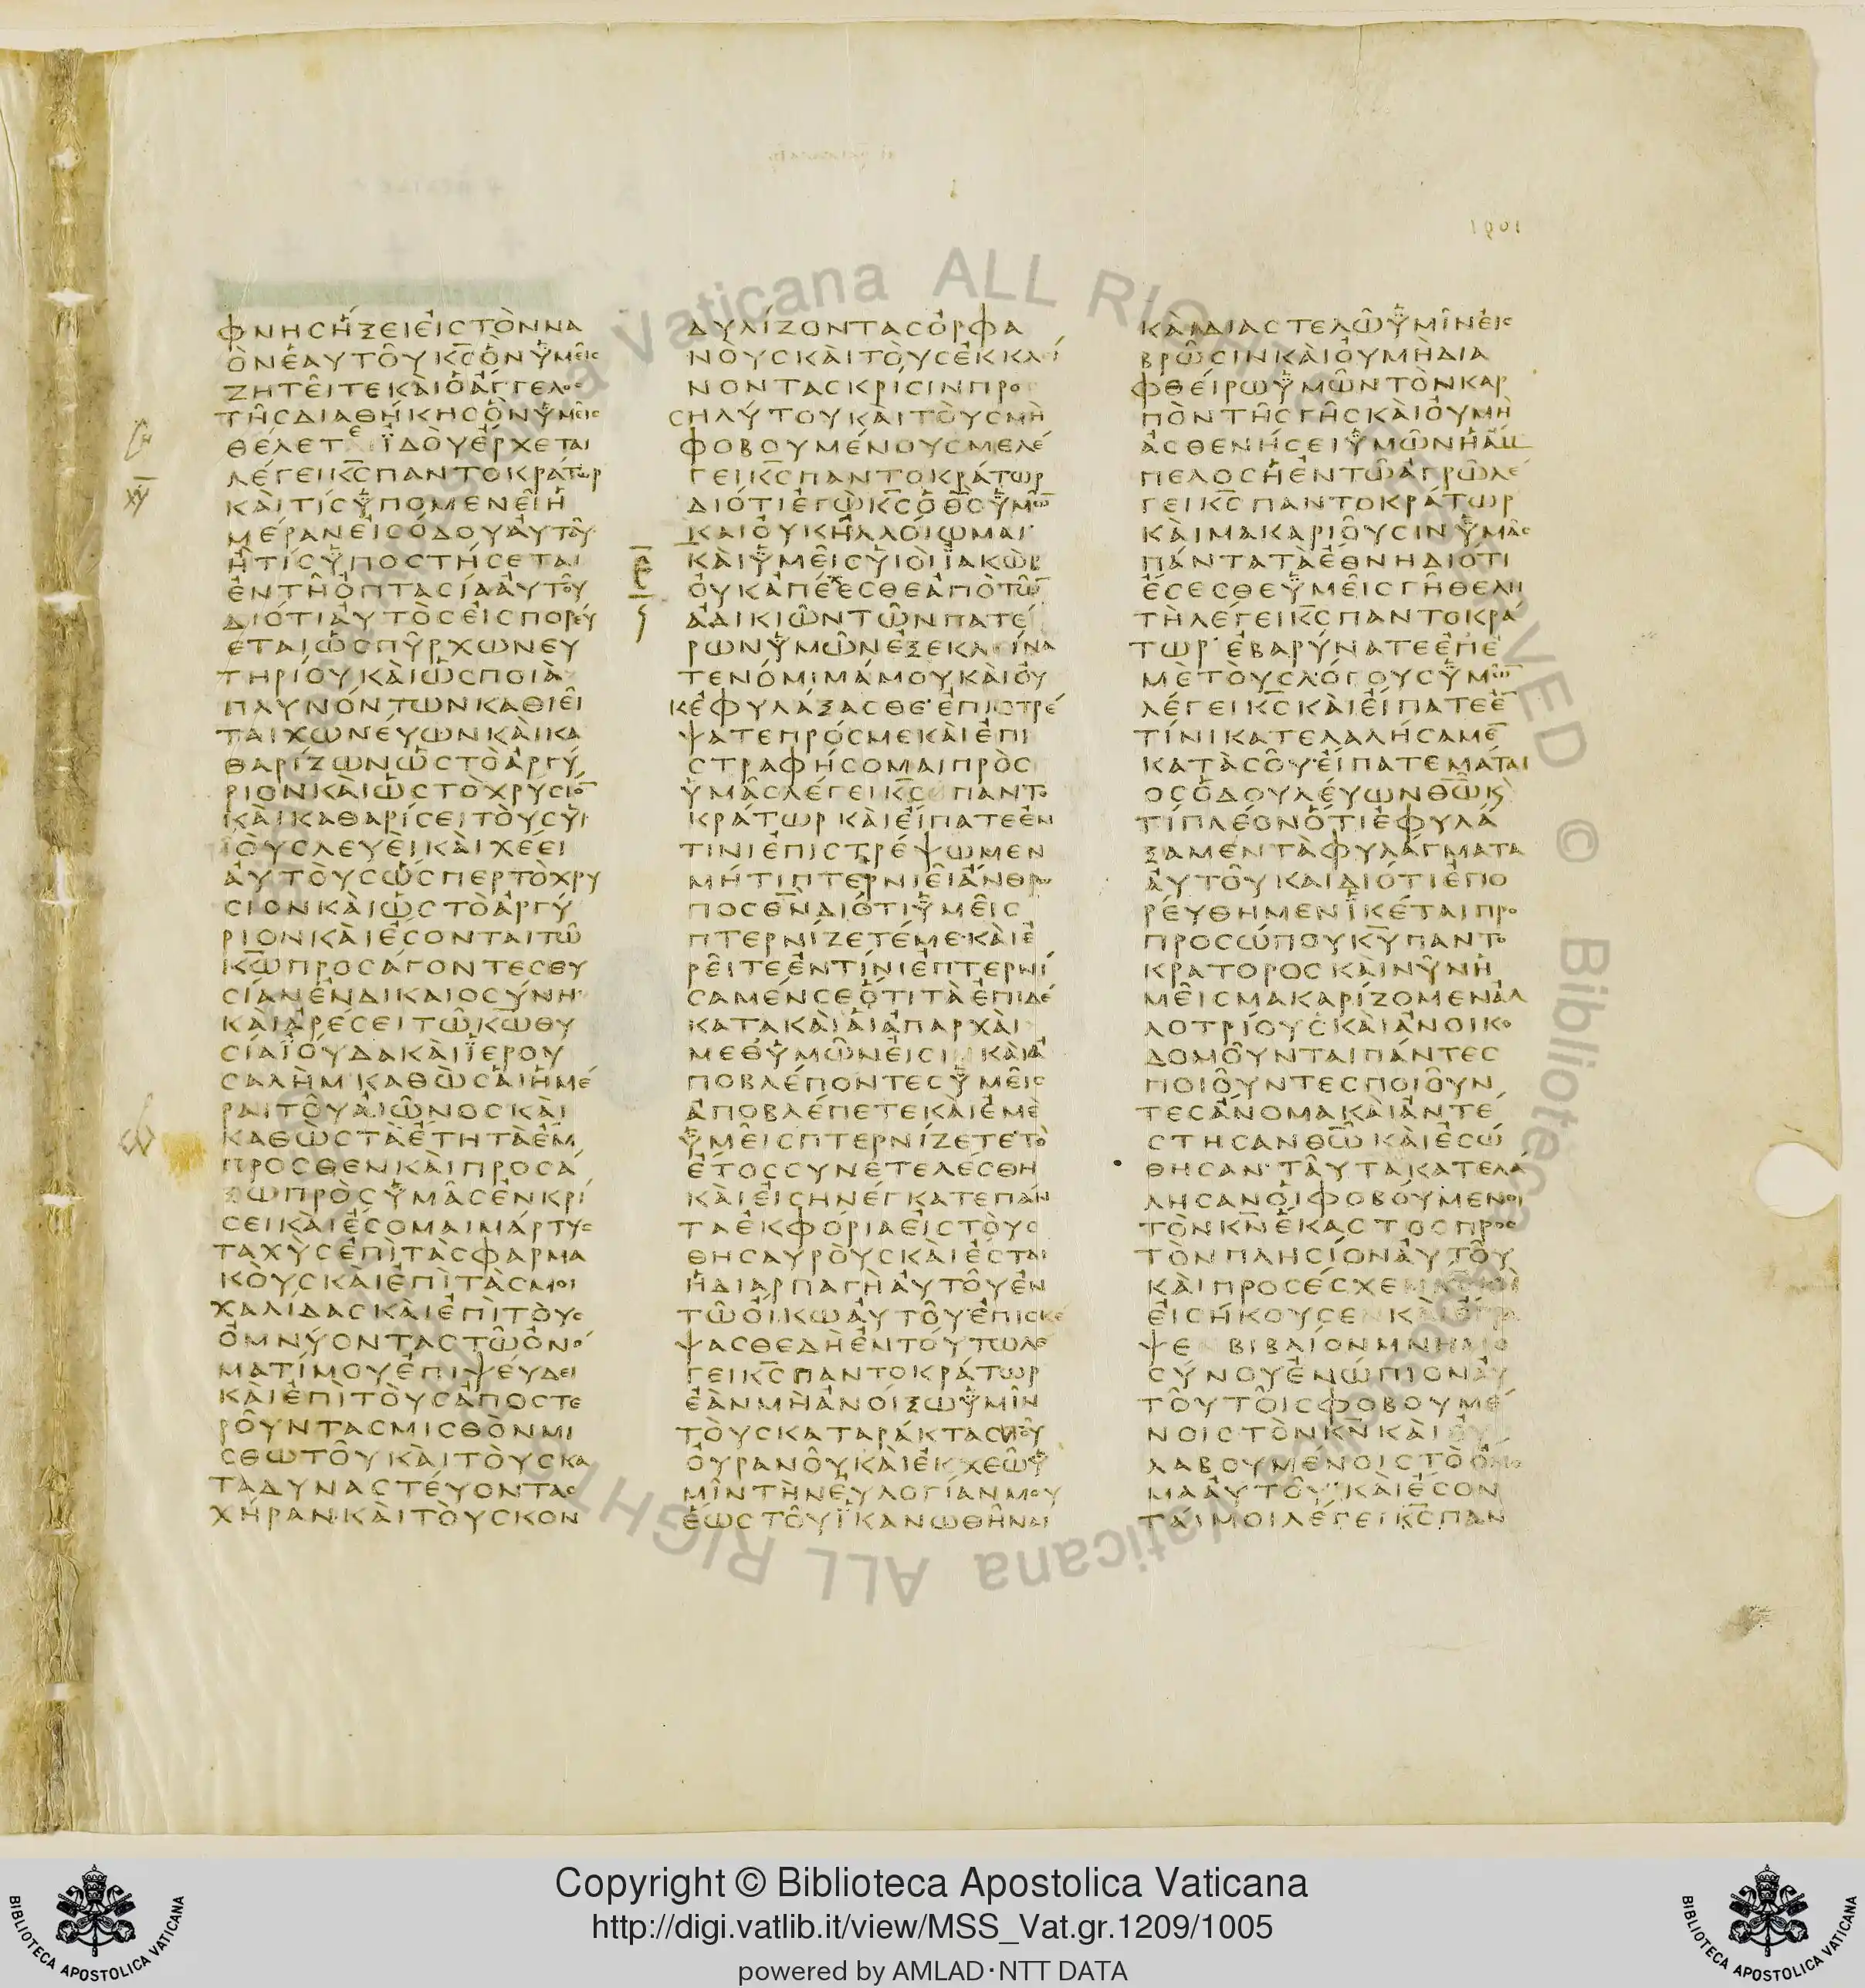 ΦΝΗϹΗΞΕΙΕΙϹΤΟΝΝΑ
ΟΝΕΑΥΤΟΥΚϹΟΝΥΜΕΙϹ
ΖΗΤΕΙΤΕΚΑΙΟΑΓΓΕΛΟϹ
ΤΗϹΔΙΑΘΗΚΗϹΟΝΥΜΕΙϹ
ΘΕΛΕΤΕ ΪΔΟΥΕΡΧΕΤΑΙ
ΛΕΓΕΙΚϹΠΑΝΤΟΚΡΑΤΩΡ
ΚΑΙΤΙϹΥΠΟΜΕΝΕΙΗ
ΜΕΡΑΝΕΙϹΟΔΟΥΑΥΤΟΥ
ΗΤΙϹΥΠΟϹΤΗϹΕΤΑΙ
ΕΝΤΗΟΠΤΑϹΙΑΑΥΤΟΥ
ΔΙΟΤΙΑΥΤΟϹΕΙϹΠΟΡΕΥ
ΕΤΑΙΩϹΠΥΡΧΩΝΕΥ
ΤΗΡΙΟΥΚΑΙΩϹΠΟΙΑ
ΠΛΥΝΟΝΤΩΝΚΑΘΙΕΙ
ΤΑΙΧΩΝΕΥΩΝΚΑΙΚΑ
ΘΑΡΙΖΩΝΩϹΤΟΑΡΓΥ
ΡΙΟΝΚΑΙΩϹΤΟΧΡΥϹΙΟ̅
ΚΑΙΚΑΘΑΡΙϹΕΙΤΟΥϹΥΙ
ΟΥϹΛΕΥΕΙΚΑΙΧΕΕΙ
ΑΥΤΟΥϹΩϹΠΕΡΤΟΧΡΥ
ϹΙΟΝΚΑΙΩϹΤΟΑΡΓΥ
ΡΙΟΝΚΑΙΕϹΟΝΤΑΙΤΩ
ΚΩΠΡΟϹΑΓΟΝΤΕϹΘΥ
ϹΙΑΝΕΝΔΙΚΑΙΟϹΥΝΗ·
ΚΑΙΑΡΕϹΕΙΤΩΚΩΘΥ
ϹΙΑΪΟΥΔΑΚΑΙΪΕΡΟΥ
ϹΑΛΗΜ·ΚΑΘΩϹΑΙΗΜΕ
ΡΑΙΤΟΥΑΙΩΝΟϹΚΑΙ
ΚΑΘΩϹΤΑΕΤΗΤΑΕΜ
ΠΡΟϹΘΕΝΚΑΙΠΡΟϹΑ
ΞΩΠΡΟϹΥΜΑϹΕΝΚΡΙ
ϹΕΙΚΑΙΕϹΟΜΑΙΜΑΡΤΥϹ
ΤΑΧΥϹΕΠΙΤΑϹΦΑΡΜΑ
ΚΟΥϹΚΑΙΕΠΙΤΑϹΜΟΙ
ΧΑΛΙΔΑϹΚΑΙΕΠΙΤΟΥϹ
ΟΜΝΥΟΝΤΑϹΤΩΟΝΟ
ΜΑΤΙΜΟΥΕΠΙΨΕΥΔΕΙ
ΚΑΙΕΠΙΤΟΥϹΑΠΟϹΤΕ
ΡΟΥΝΤΑϹΜΙϹΘΟΝΜΙ
ϹΘΩΤΟΥΚΑΙΤΟΥϹΚΑ
ΤΑΔΥΝΑϹΤΕΥΟΝΤΑϹ
ΧΗΡΑΝ·ΚΑΙΤΟΥϹΚΟΝ
ΔΥΛΙΖΟΝΤΑϹΟΡΦΑ
ΝΟΥϹΚΑΙΤΟΥϹΕΚΚΛΙ
ΝΟΝΤΑϹΚΡΙϹΙΝΠΡΟ
ϹΗΛΥΤΟΥΚΑΙΤΟΥϹΜΗ
ΦΟΒΟΥΜΕΝΟΥϹΜΕΛΕ
ΓΕΙΚϹΠΑΝΤΟΚΡΑΤΩΡ
ΔΙΟΤΙΕΓΩΚϹΟΘϹΥΜΩ̅
ΚΑΙΟΥΚΗΛΛΟΙΩΜΑΙ·
ΚΑΙΥΜΕΙϹΥΙΟΙΪΑΚΩΒ
ΟΥΚΑΠΕΧΕϹΘΕΑΠΟΤΩ̅
ΑΔΙΚΙΩΝΤΩΝΠΑΤΕ
ΡΩΝΥΜΩΝΕΞΕΚΛΕΙΝΑ
ΤΕΝΟΜΙΜΑΜΟΥΚΑΙΟΥ
ΚΕΦΥΛΑΞΑϹΘΕ·ΕΠΙϹΤΡΕ
ΨΑΤΕΠΡΟϹΜΕΚΑΙΕΠΙ
ϹΤΡΑΦΗϹΟΜΑΙΠΡΟϹ
ΥΜΑϹΛΕΓΕΙΚϹ ΠΑΝΤΟ
ΚΡΑΤΩΡ ΚΑΙΕΙΠΑΤΕΕΝ
ΤΙΝΙΕΠΙϹΤΡΕΨΩΜΕΝ
ΜΗΤΙΠΤΕΡΝΙΕΙΑΝΘΡΩ
ΠΟϹΘΝΔΙΟΤΙΥΜΕΙϹ
ΠΤΕΡΝΙΖΕΤΕΜΕ·ΚΑΙΕ
ΡΕΙΤΕΕΝΤΙΝΙΕΠΤΕΡΝΙ
ϹΑΜΕΝϹΕΟΤΙΤΑΕΠΙΔΕ
ΚΑΤΑΚΑΙΑΙΑΠΑΡΧΑΙ
ΜΕΘΥΜΩΝΕΙϹΙΝΚΑΙΑ
ΠΟΒΛΕΠΟΝΤΕϹΥΜΕΙϹ
ΑΠΟΒΛΕΠΕΤΕΚΑΙΕΜΕ
ΥΜΕΙϹΠΤΕΡΝΙΖΕΤΕ·ΤΟ
ΕΤΟϹϹΥΝΕΤΕΛΕϹΘΗ
ΚΑΙΕΙϹΗΝΕΓΚΑΤΕΠΑΝ
ΤΑΕΚΦΟΡΙΑΕΙϹΤΟΥϹ
ΘΗϹΑΥΡΟΥϹΚΑΙΕϹΤΑΙ
ΗΔΙΑΡΠΑΓΗΑΥΤΟΥΕΝ
ΤΩΟΙΚΩΑΥΤΟΥ·ΕΠΙϹΚΕ
ΨΑϹΘΕΔΗΕΝΤΟΥΤΩΛΕ
ΓΕΙΚϹΠΑΝΤΟΚΡΑΤΩΡ
ΕΑΝΜΗΑΝΟΙΞΩΥΜΙΝ
ΤΟΥϹΚΑΤΑΡΑΚΤΑϹΤΟΥ
ΟΥΡΑΝΟΥΚΑΙΕΚΧΕΩΥ
ΜΙΝΤΗΝΕΥΛΟΓΙΑΝΜΟΥ
ΕΩϹΤΟΥΪΚΑΝΩΘΗΝΑΙ
ΚΑΙΔΙΑϹΤΕΛΩΥΜΙΝΕΙϹ
ΒΡΩϹΙΝΚΑΙΟΥΜΗΔΙΑ
ΦΘΕΙΡΩΥΜΩΝΤΟΝΚΑΡ
ΠΟΝΤΗϹΓΗϹΚΑΙΟΥΜΗ
ΑϹΘΕΝΗϹΕΙΥΜΩΝΗΑΜ
ΠΕΛΟϹΗΕΝΤΩΑΓΡΩΛΕ
ΓΕΙΚϹ ΠΑΝΤΟΚΡΑΤΩΡ
ΚΑΙΜΑΚΑΡΙΟΥϹΙΝΥΜΑϹ
ΠΑΝΤΑΤΑΕΘΝΗΔΙΟΤΙ
ΕϹΕϹΘΕΥΜΕΙϹΓΗΘΕΛΗ
ΤΗΛΕΓΕΙΚϹΠΑΝΤΟΚΡΑ
ΤΩΡ·ΕΒΑΡΥΝΑΤΕΕΠΕ
ΜΕΤΟΥϹΛΟΓΟΥϹΥΜΩ̅
ΛΕΓΕΙΚϹΚΑΙΕΙΠΑΤΕΕ̅
ΤΙΝΙΚΑΤΕΛΑΛΗϹΑΜΕ̅
ΚΑΤΑϹΟΥ·ΕΙΠΑΤΕΜΑΤΑΙ
ΟϹΟΔΟΥΛΕΥΩΝΘΩΚ
ΤΙΠΛΕΟΝΟΤΙΕΦΥΛΑ
ΞΑΜΕΝΤΑΦΥΛΑΓΜΑΤΑ
ΑΥΤΟΥΚΑΙΔΙΟΤΙΕΠΟ
ΡΕΥΘΗΜΕΝΪΚΕΤΑΙΠΡΟ
ΠΡΟϹΩΠΟΥΚΥΠΑΝΤΟ
ΚΡΑΤΟΡΟϹΚΑΙΝΥΝΗ
ΜΕΙϹΜΑΚΑΡΙΖΟΜΕΝΑΛ
ΛΟΤΡΙΟΥϹΚΑΙΑΝΟΙΚΟ
ΔΟΜΟΥΝΤΑΙΠΑΝΤΕϹ
ΠΟΙΟΥΝΤΕϹΠΟΙΟΥΝ
ΤΕϹΑΝΟΜΑΚΑΙΑΝΤΕ
ϹΤΗϹΑΝΘΩΚΑΙΕϹΩ
ΘΗϹΑΝ·ΤΑΥΤΑΚΑΤΕΛΑ
ΛΗϹΑΝΟΙΦΟΒΟΥΜΕΝΟΙ
ΤΟΝΚΝΕΚΑϹΤΟϹΠΡΟϹ
ΤΟΝΠΛΗϹΙΟΝΑΥΤΟΥ
ΚΑΙΠΡΟϹΕϹΧΕΝ
ΕΙϹΗΚΟΥϹΕΝΚΑΙΕΓΡΑ
ΨΕ ΒΙΒΛΙΟΝΜΝΗΜΟ
ϹΥΝΟΥΕΝΩΠΙΟΝΑΥ
ΤΟΥΤΟΙϹΦΟΒΟΥΜΕ
ΝΟΙϹΤΟΝΚΝΚΑΙΕΥ
ΛΑΒΟΥΜΕΝΟΙϹΤΟΟΝΟ
ΜΑΑΥΤΟΥ·ΚΑΙΕϹΟΝ
ΤΑΙΜΟΙΛΕΓΕΙΚϹΠΑΝ
Copyright © Biblioteca Apostolica Vaticana
http://digi.vatlib.it/view/MSS_Vat.gr.1209/1005
powered by AMLAD·NTT DATA
BIBLIOTECA APOSTOLICA VATICANA
BIBLIOTECA APOSTOLICA VATICANA